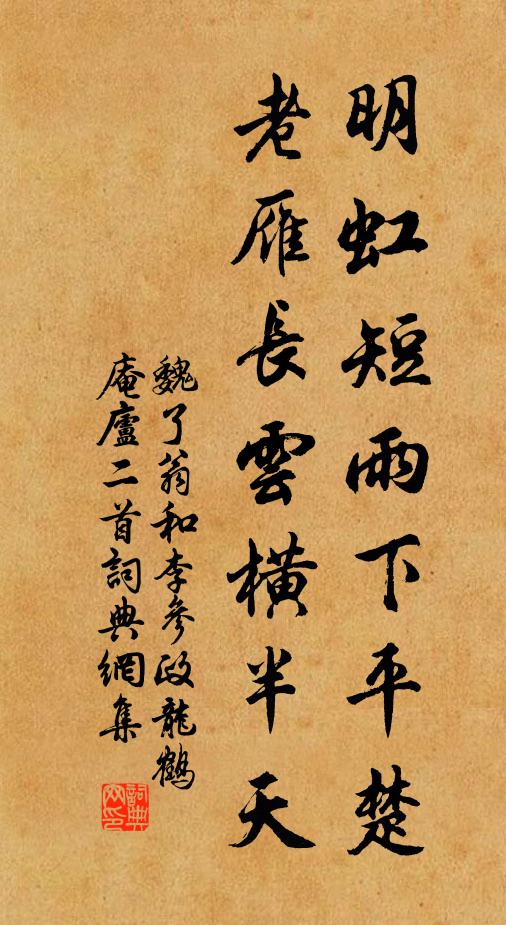 明虹短雨下平楚
老雁長雲橫半天
魏了翁和李參政龍鶴
庵廬二首詞典網集
詞典網印